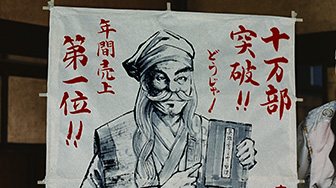 十万部
突破!!
どうじゃ!
年間売上
第一位!!